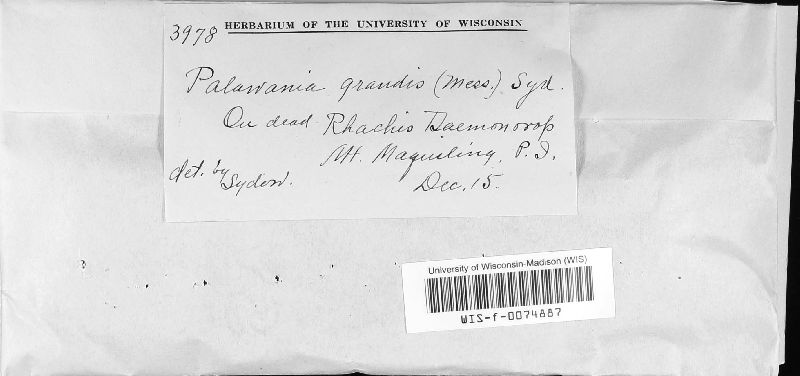 3978 HERBARIUM OF THE UNIVERSITY OF WISCONSIN
Palawania grandis (Mess.) Syd.
On dead Rhachis Daemonorops
Mt. Maquiling, P. I.
det. by Sydow.
Dec. 15.
University of Wisconsin-Madison (WIS)
WIS-f-0074887